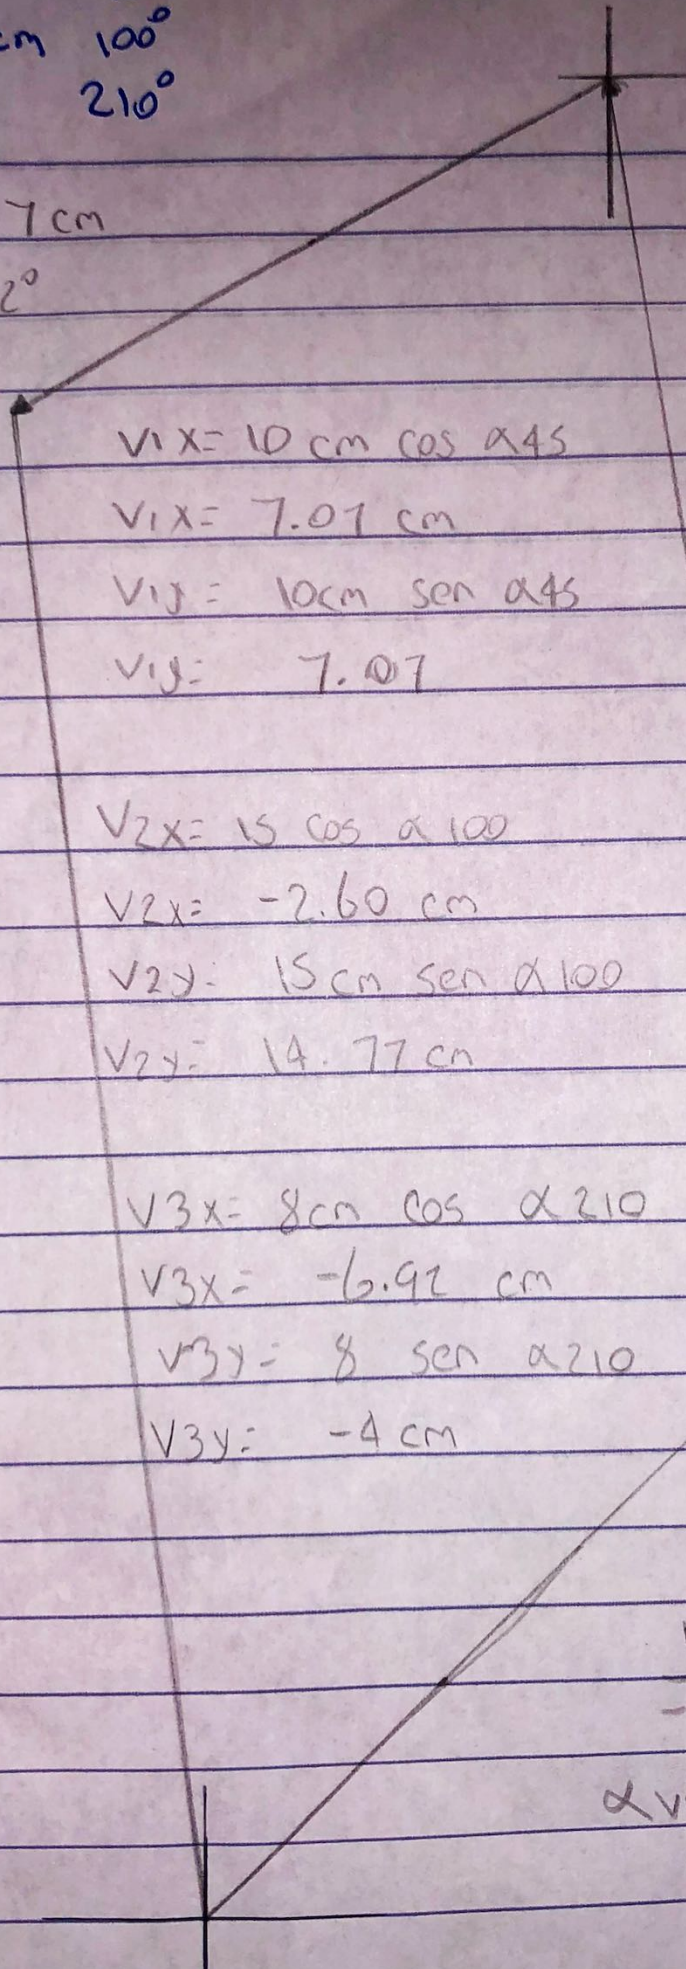 cm 100°
210°
7cm
2°
V1x= 10 cm cos α45
V1x= 7.07 cm
V1y= 10cm sen α45
V1y= 7.07
V2x= 15 cos α100
V2x= -2.60 cm
V2y= 15cm sen α100
V2y= 14.77cm
V3x= 8cm cos α210
V3x= -6.92 cm
V3y= 8 sen α210
V3y= -4cm
αv